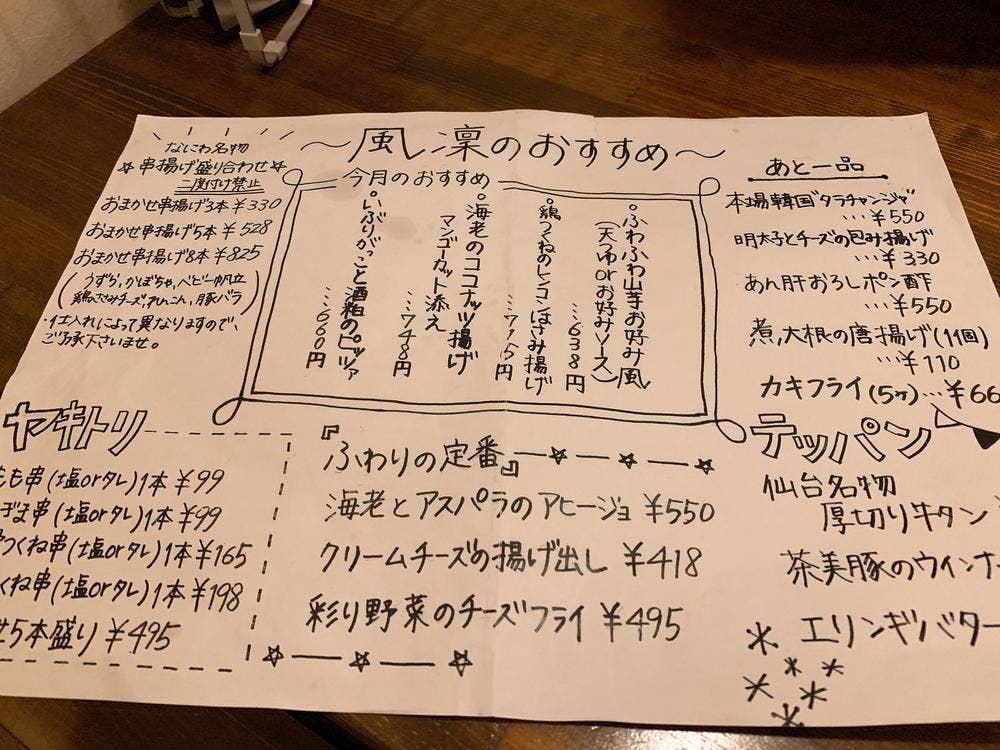 〜風凜のおすすめ〜
なにわ名物
☆串揚げ盛り合わせ☆
二度付け禁止
おまかせ串揚げ3本 ¥330
おまかせ串揚げ5本 ¥528
おまかせ串揚げ8本 ¥825
(うずら、かぼちゃ、ベビー帆立
鶏ささみチーズ、れんこん、豚バラ)
・仕入れによって異なりますので、
ご了承下さいませ。
今月のおすすめ
ふわふわ山芋お好み風
(天つゆorお好みソース)
…638円
鶏つくねのレンコンはさみ揚げ
…715円
海老のココナッツ揚げ
マンゴーカット添え
…748円
いぶりがっこと酒粕のピッツァ
…660円
あと一品
本場韓国タラチャンジャ
…¥550
明太子とチーズの包み揚げ
…¥330
あん肝おろしポン酢
…¥550
煮大根の唐揚げ(1個)
…¥110
カキフライ(5ケ)…¥66
ヤキトリ
もも串(塩orタレ)1本 ¥99
ぎま串(塩orタレ)1本 ¥99
つくね串(塩orタレ)1本 ¥165
くね串(塩orタレ)1本 ¥198
5本盛り ¥495
『ふわりの定番』
海老とアスパラのアヒージョ ¥550
クリームチーズの揚げ出し ¥418
彩り野菜のチーズフライ ¥495
テッパン
仙台名物
厚切り牛タン
茶美豚のウィンナー
エリンギバター